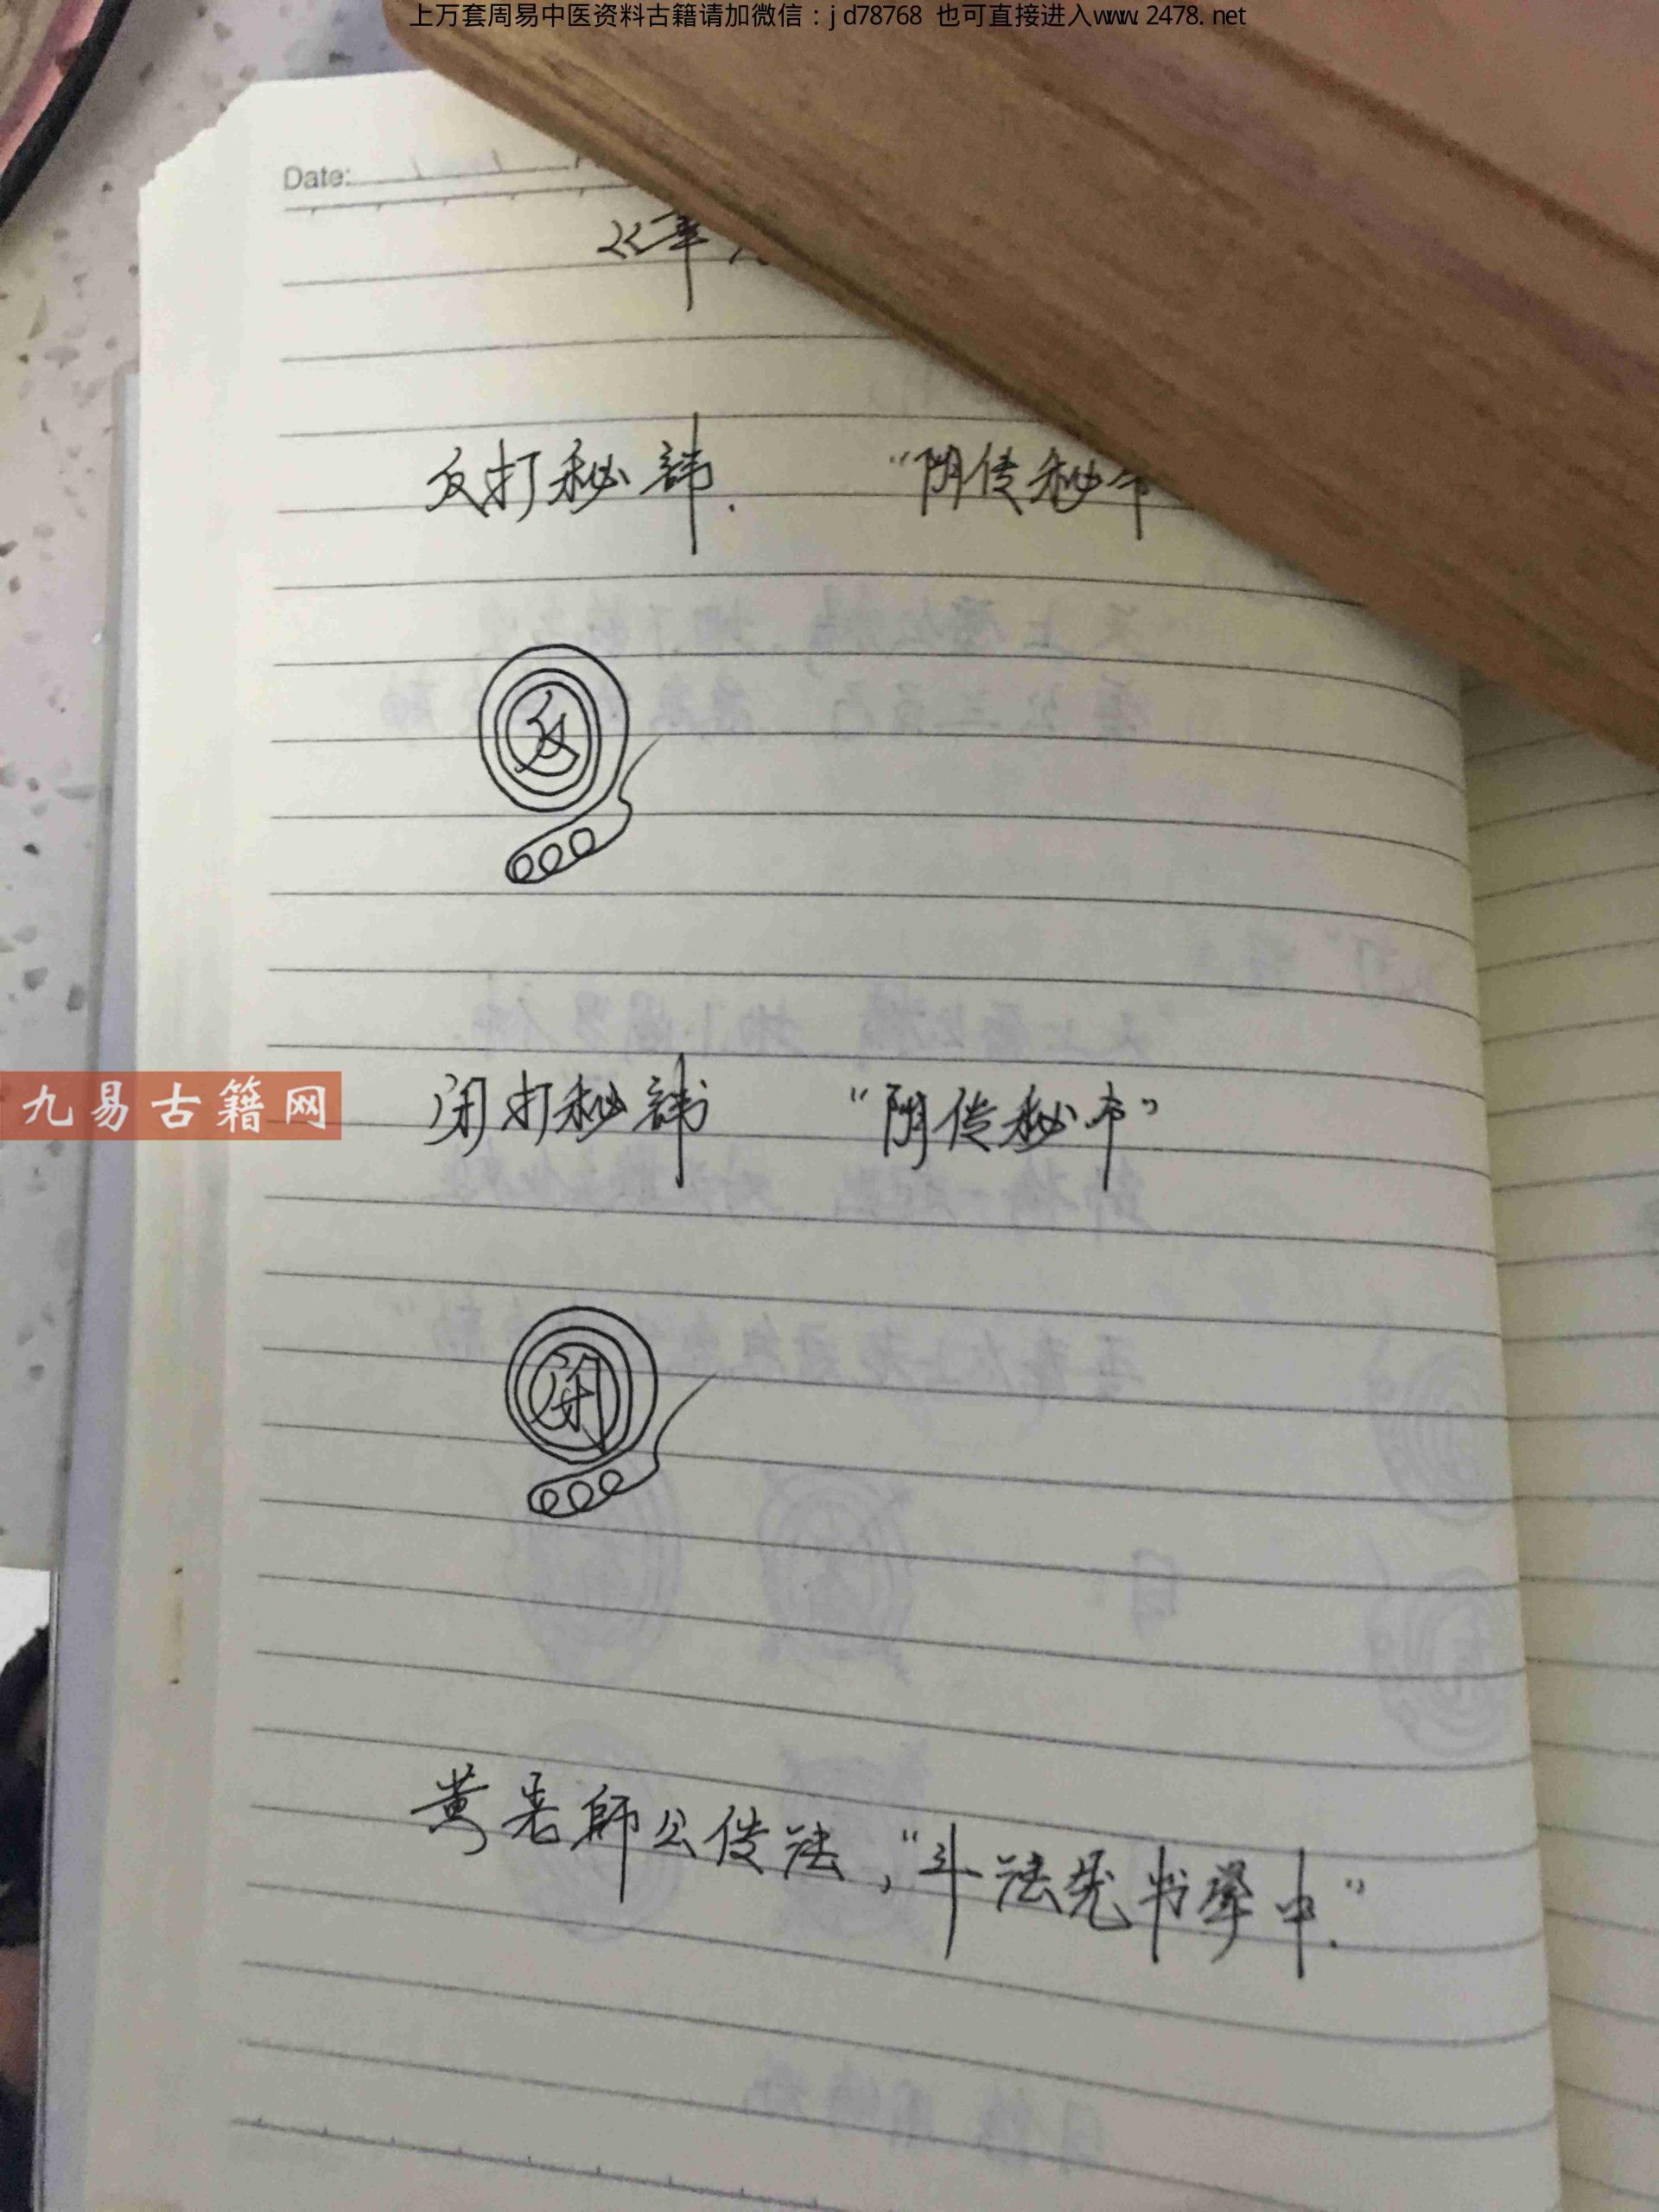 上万套周易中医资料古籍请加微信：jd78768 也可直接进入www.2478.net
Date:
反打秘讳. “阴传秘
反
九易古籍网
闭打秘讳 “阴传秘本”
闭
黄老師公传法，“斗法先书掌中.”